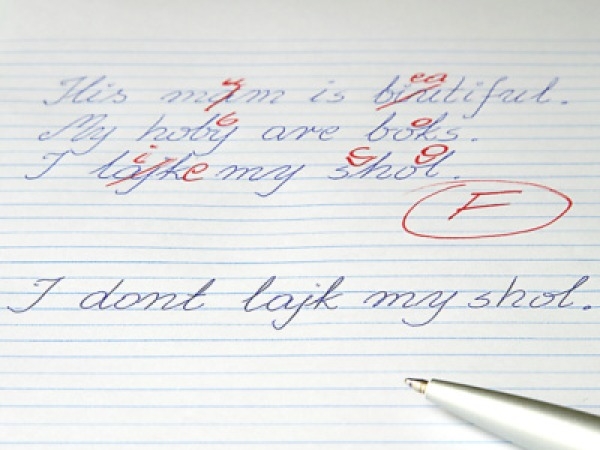 u ea
His mam is biutiful.
b o
My hoby are boks.
i c o
I lajke my shol.
F
I dont lajk my shol.